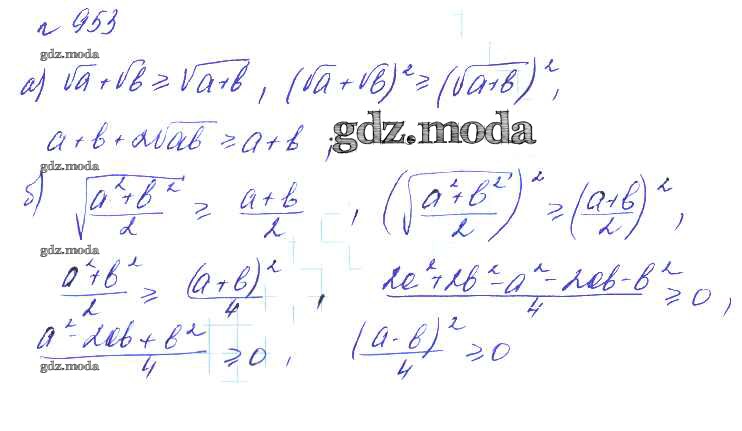 № 953
gdz.moda
а) √a + √b ≥ √(a+b), (√a + √b)² ≥ (√(a+b))²,
a + b + 2√ab ≥ a + b;
gdz.moda
gdz.moda
б) √((a²+b²)/2) ≥ (a+b)/2, (√((a²+b²)/2))² ≥ ((a+b)/2)²,
gdz.moda
(a²+b²)/2 ≥ (a+b)²/4, (2a²+2b²-a²-2ab-b²)/4 ≥ 0,
(a²-2ab+b²)/4 ≥ 0, (a-b)²/4 ≥ 0
gdz.moda